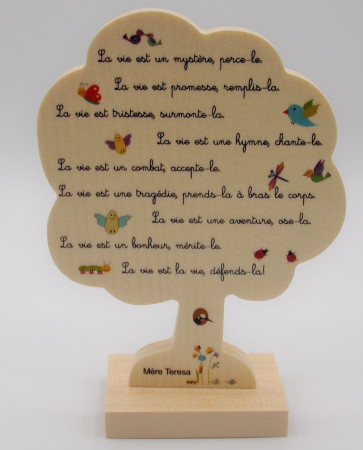 La vie est un mystère, perce-le.
La vie est promesse, remplis-la.
La vie est tristesse, surmonte-la.
La vie est une hymne, chante-le.
La vie est un combat, accepte-le.
La vie est une tragédie, prends-la à bras le corps.
La vie est une aventure, ose-la.
La vie est un bonheur, mérite-le.
La vie est la vie, défends-la!
Mère Teresa